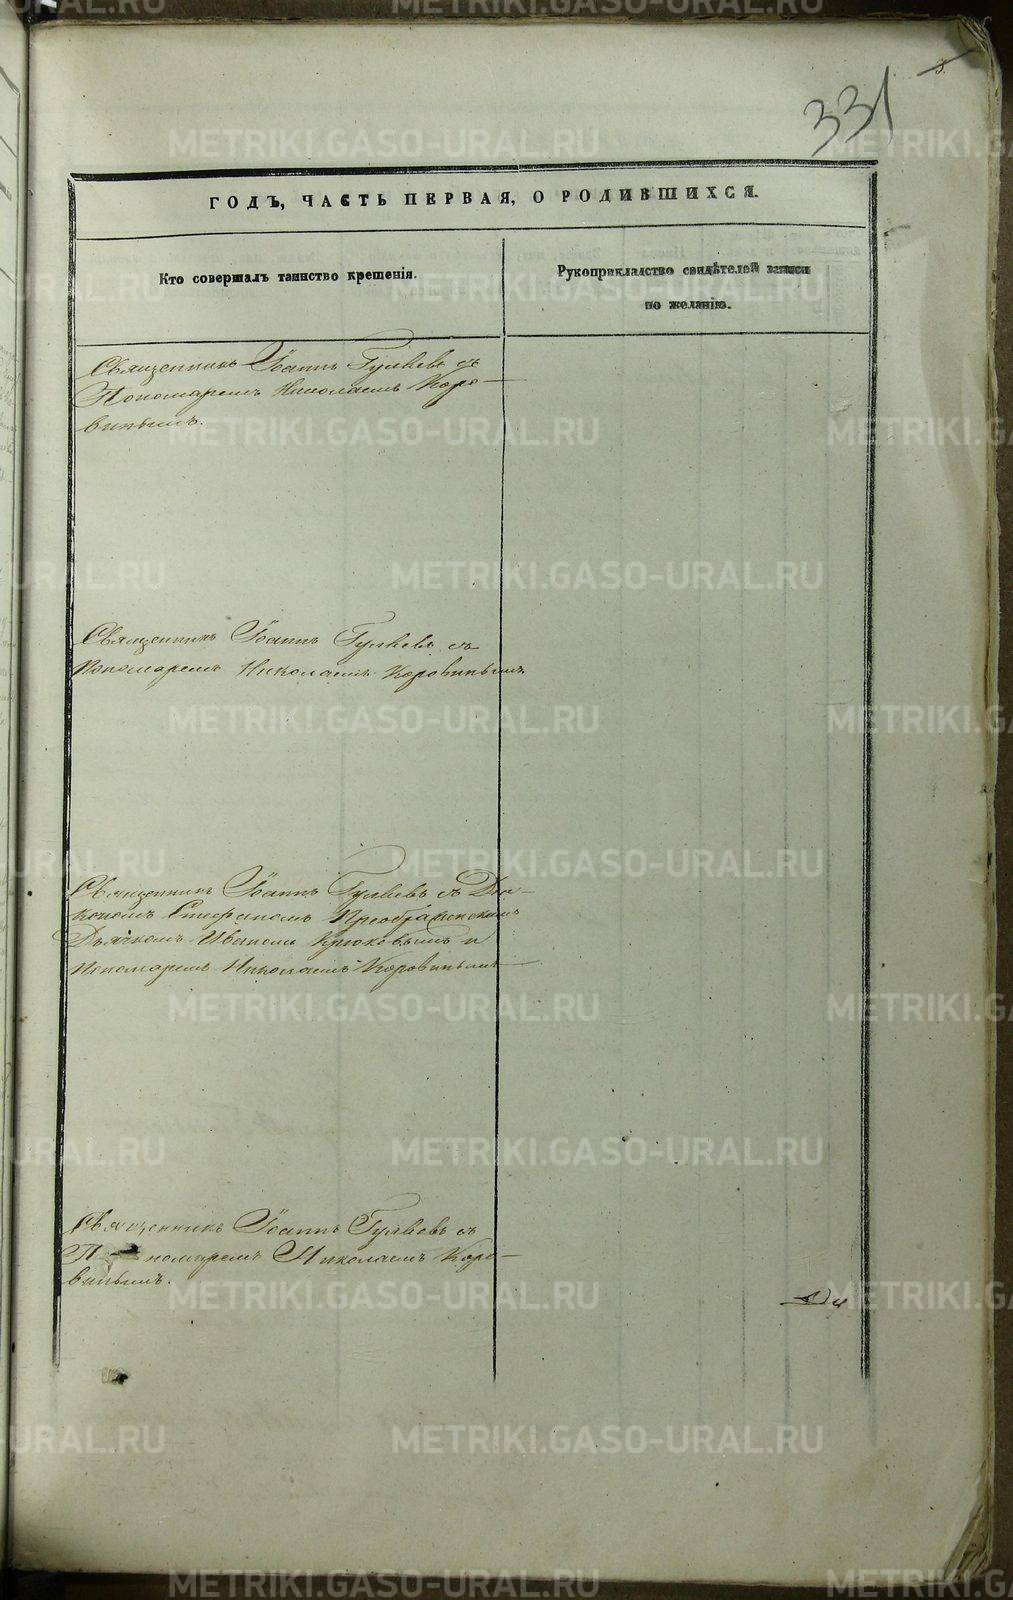 331
ГОДЪ, ЧАСТЬ ПЕРВАЯ, О РОДИВШИХСЯ.
Кто совершалъ таинство крещенія.
Рукоприкладство свидѣтелей записи
по желанію.
Священникъ Іоаннъ Гуляевъ съ
Пономаремъ Николаемъ Коро-
винымъ.
Священникъ Іоаннъ Гуляевъ съ
Пономаремъ Николаемъ Коровинымъ.
Священникъ Іоаннъ Гуляевъ съ Диа-
кономъ Стефаномъ Преображенскимъ
Дьячкомъ Иваномъ Крюковымъ и
Пономаремъ Николаемъ Коровинымъ
Священникъ Іоаннъ Гуляевъ съ
Пономаремъ Николаемъ Коро-
винымъ.
METRIKI.GASO-URAL.RU